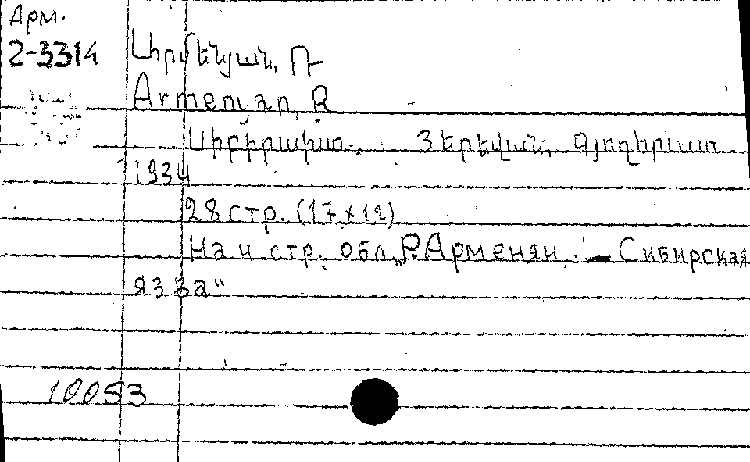 Арм.
2-3314
Արմենյան, Ռ
Armenian, R
Սիբիրախտ. Յերեվան, Գյուղհրատ
1934
28 стр. (17 x 12)
На 4 стр. обл. „Р. Арменян. – Сибирская
язва“
10053